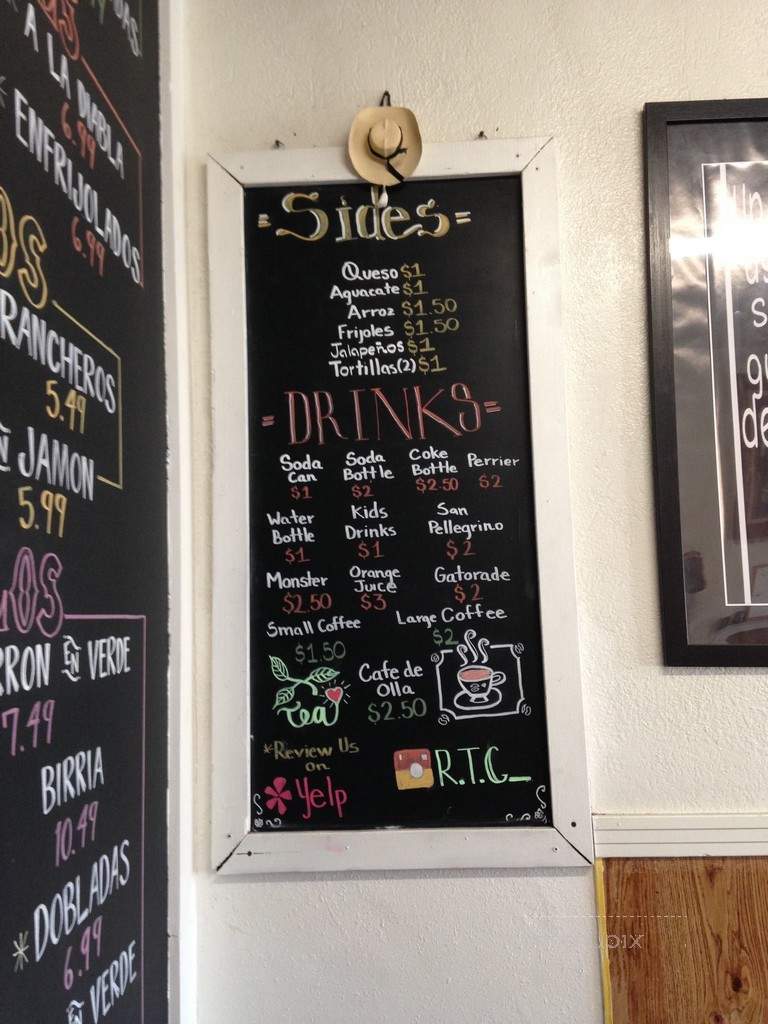 A LA DIABLA
6.99
* ENFRIJOLADOS
6.99
OS
RANCHEROS
5.49
EN JAMON
5.99
OS
RRON EN VERDE
7.49
BIRRIA
10.49
* DOBLADAS
6.99
EN VERDE
= Sides =
Queso $1
Aguacate $1
Arroz $1.50
Frijoles $1.50
Jalapeños $1
Tortillas(2) $1
= DRINKS =
Soda Can $1
Soda Bottle $2
Coke Bottle $2.50
Perrier $2
Water Bottle $1
Kids Drinks $1
San Pellegrino $2
Monster $2.50
Orange Juice $3
Gatorade $2
Small Coffee $1.50
Large Coffee $2
tea
Cafe de Olla $2.50
*Review Us
on
Yelp
R.T.G_
Un
us
S
gu
de